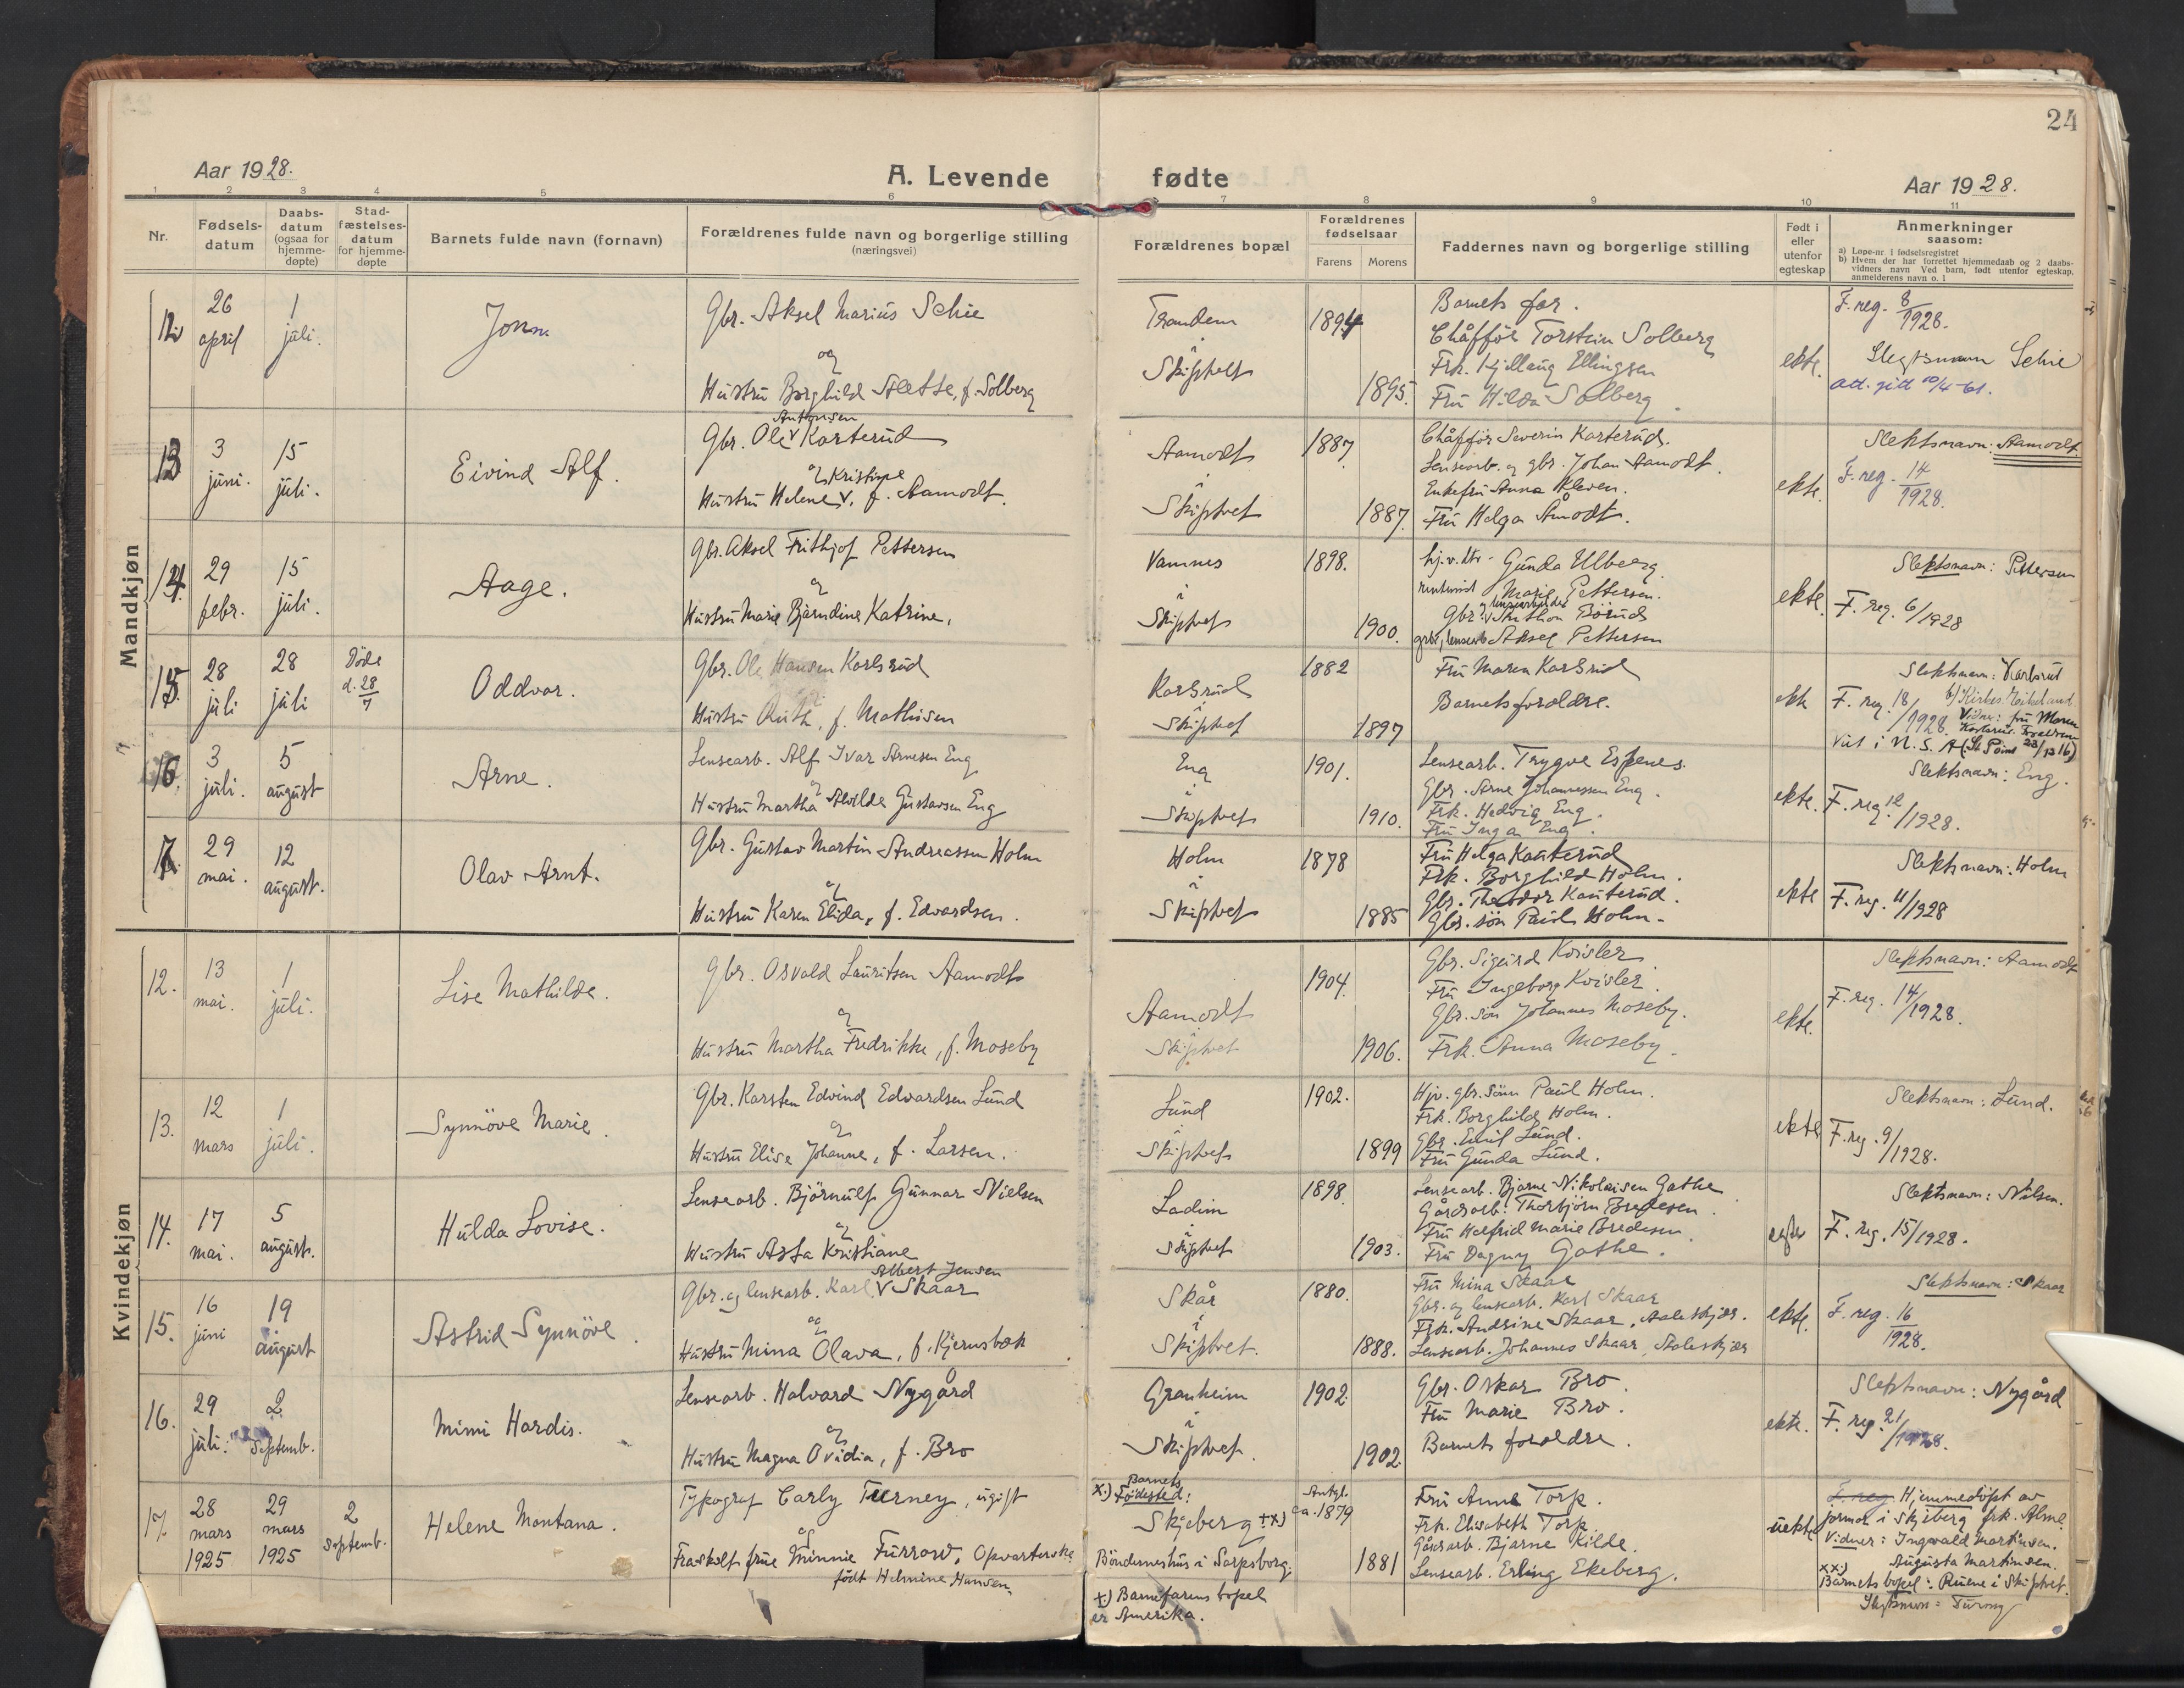 24
Aar 1928.
A. Levende fødte
Aar 1928.
1 2 3 4 5 6 7 8 9 10 11
Nr.
Fødsels-
datum
Daabs-
datum
(ogsaa for
hjemme-
døpte)
Stad-
fæstelses-
datum
for hjemme-
døpte
Barnets fulde navn (fornavn)
Forældrenes fulde navn og borgerlige stilling
(næringsvei)
Forældrenes bopæl
Forældrenes
fødselsaar
Farens Morens
Faddernes navn og borgerlige stilling
Født i
eller
utenfor
egteskap
Anmerkninger
saasom:
a) Løpe-nr. i fødselsregistret
b) Hvem der har forrettet hjemmedaab og 2 daabs-
vidners navn Ved barn, født utenfor egteskap,
anmelderens navn o. l
Mandkjøn
12
26
april
1
juli.
Jonn.
Gbr. Aksel Marius Schie
og
Hustru Borghild Alette, f. Solberg
Trandem
i
Skiptvet
1894
1895.
Barnets far.
Chåffør Torstein Solberg
Frk. Kjellaug Ellingsen
Fru Hilda Solberg.
ekte.
F. reg. 8/1928.
Slegtsnavn Schie
att. gitt 10/4-61.
13
3
juni.
15
juli.
Eivind Alf.
Antonsen
Gbr. Ole v Karterud
og Kristine
Hustru Helene v. f. Aamodt.
Aamodt
i
Skiptvet
1887
1887.
Chåffør Severin Karterud.
Lensearb. og gbr. Johan Aamodt.
Enkefru Anna Kleven.
Fru Helga Åmodt.
ekte.
Slektsnavn: Aamodt.
F. reg. 14/1928.
14.
29
febr.
15
juli.
Aage.
Gbr. Aksel Frithjof Pettersen
og
Hustru Marie Bjarndine Katrine,
Vamnes
i
Skiptvet
1898.
1900.
hj.v. dtr. Gunda Ulberg.
Marie Pettersen.
og lensearbeider
Gbr. v Børud
Aksel Pettersen
ekte.
Slektsnavn: Pettersen
F. reg. 6/1928
15.
28
juli
28
juli
Døde
d. 28/7
Oddvar.
Gbr. Ole Hansen Karlsrud
Hustru Ruth, f. Mathisen
Karlsrud
i
Skiptvet
1882
1897
Fru Maren Karlsrud
Barnets foreldre.
ekte
Slektsnavn: Karlsrut
F. reg. 18/1928
Vidner: fru Maren
16.
3
juli.
5
august
Arne.
Lensearb. Alf Ivar Arnesen Eng
og
Hustru Martha Alvilde Gustavsen Eng
Eng
i
Skiptvet
1901.
1910.
Lensearb. Trygve Espenes.
Gbr. Arne Johannessen Eng.
Frk. Hedvig Eng.
Fru Inga Eng.
ekte.
Slektsnavn: Eng.
F. reg. 12/1928.
17.
29
mai.
12
august.
Olav Arnt.
Gbr. Gustav Martin Andreassen Holm
og
Hustru Karen Elida, f. Edvardsen.
Holm
i
Skiptvet
1878
1885
Fru Helga Kauterud
Frk. Borghild Holm.
Gbr. Theodor Kauterud.
Gbr. søn Paul Holm.
ekte
Slektsnavn: Holm
F. reg. 11/1928
Kvindekjøn
12.
13
mai.
1
juli.
Lise Mathilde.
Gbr. Osvald Lauritsen Aamodt
og
Hustru Martha Fredrikke, f. Moseby
Aamodt
i
Skiptvet
1904
1906.
Gbr. Sigurd Kvisler
Fru Ingeborg Kvisler.
Gbr. søn Johannes Moseby.
Frk. Anna Moseby.
ekte.
Slektsnavn: Aamodt
F. reg. 14/1928.
13.
12
mars
1
juli.
Synnöve Marie.
Gbr. Karsten Edvind Edvardsen Lund
og
Hustru Elise Johanne, f. Larsen.
Lund
i
Skiptvet
1902.
1899
Hjv. gbr. sønn Paul Holm.
Frk. Borghild Holm.
Gbr. Emil Lund.
Fru Gunda Lund.
ekte
Slektsnavn: Lund.
F. reg. 9/1928.
14.
17
mai.
5
august.
Hulda Lovise.
Lensearb. Björnulf Gunnar Nielsen
og
Hustru Asta Kristiane
Ladim
i
Skiptvet
1898.
1903.
Lensearb. Bjarne Nikolaisen Gathe
Gårdsarb. Thorbjörn Bredesen.
Fru Halfrid Marie Bredesen.
Fru Dagny Gathe.
Slektsnavn: Nilsen.
F. reg. 15/1928.
15.
16
juni
19
august
Astrid Synnöve.
Albert Jensen
Gbr. og lensearb. Karl v Skaar
og
Hustru Mina Olava, f. Kjernsbæk
Skår
i
Skiptvet.
1880.
1888.
Fru Mina Skaar
Gbr. og lensearb. Karl Skaar
Frk. Andrine Skaar, Aaleskjær.
Lensearb. Johannes Skaar, Aaleskjær
ekte.
Slektsnavn: Skaar
F. reg. 16/1928.
16.
29
juli.
2
Septemb.
Mimi Hardis.
Lensearb. Halvard Nygård
og
Hustru Magna Ovidia, f. Bro
Granheim
i
Skiptvet.
1902
1902.
Gbr. Oskar Bro.
Fru Marie Bro.
Barnets foreldre.
ekte.
Slektsnavn: Nygård
F. reg. 21/1928.
17.
28
mars
1925
29
mars
1925
2
septemb.
Helene Montana.
Typograf Carly Turney, ugift
og
Fraskilt frue Minnie Furrow, Opvarterske
født Helmine Hansen
x.) Barnets
Fødested:
Skjeberg +x)
Böndernes hus i Sarpsborg.
+) Barnefarens bopel
er Amerika.
Antgl.
ca. 1879
1881
Fru Anna Torp.
Frk. Elisabeth Torp.
Gårdsarb. Bjarne Kilde.
Lensearb. Erling Ekeberg.
uekte
F. reg. Hjemmedöpt av
jormor i Skjeberg frk. Alme.
Vidner: Ingvald Martinsen.
Augusta Martinsen.
xx)
Barnets bopel: Ruene i Skiptvet.